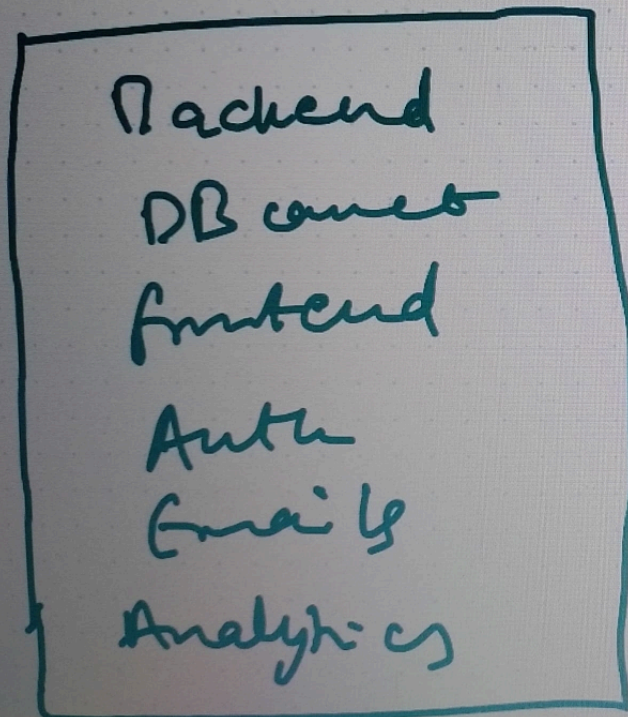 Backend
DB connect
frontend
Auth
Emails
Analytics